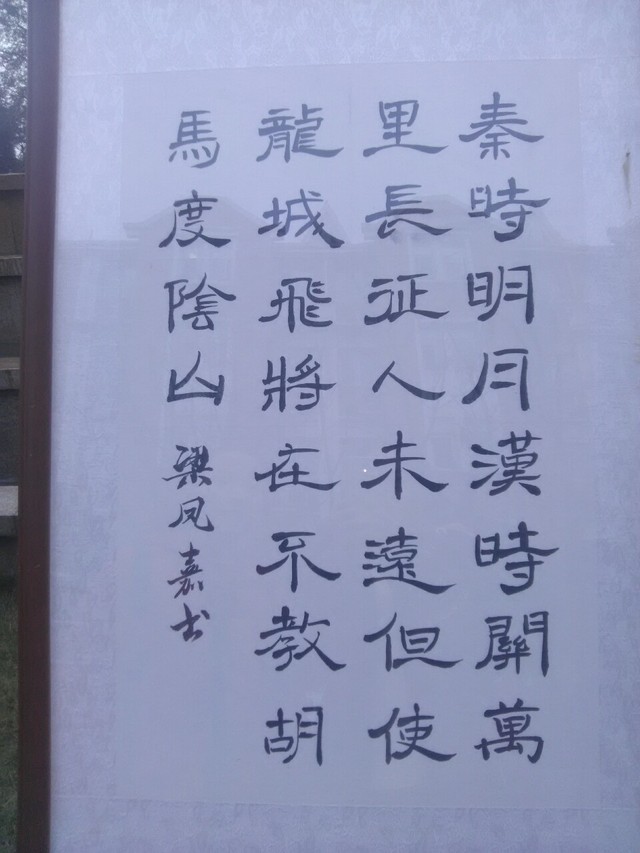 秦時明月漢時關萬
里長征人未遠但使
龍城飛將在不教胡
馬度陰山 梁凤嘉书